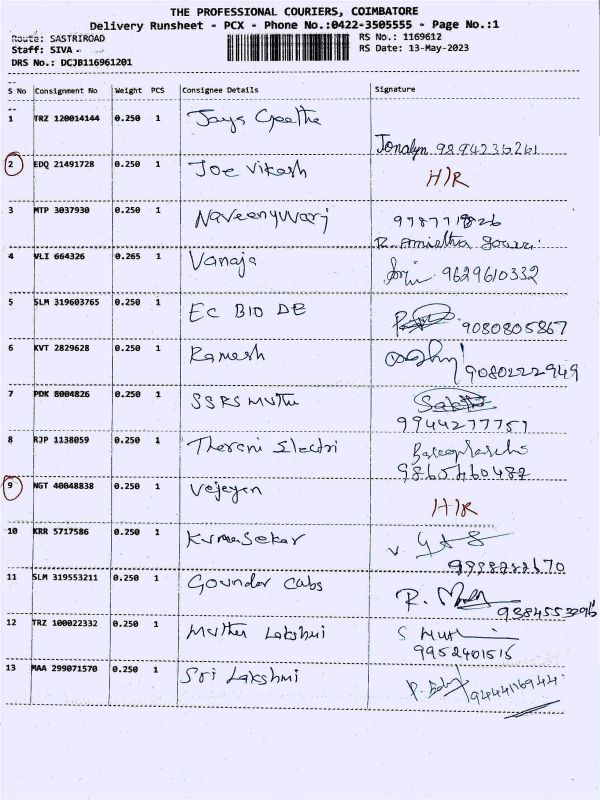 THE PROFESSIONAL COURIERS, COIMBATORE
Delivery Runsheet - PCX - Phone No.:0422-3505555 - Page No.:1
Route: SASTRIROAD RS No.: 1169612
Staff: SIVA - RS Date: 13-May-2023
DRS No.: DCJB116961201
S No Consignment No Weight PCS Consignee Details Signature
1 TRZ 120014144 0.250 1 Jays Geetha
Jonalyn 9894236261
2 EDQ 21491728 0.250 1 Joe Vikash H/R
3 MTP 3037930 0.250 1 Naveenyuvarj 9787718826
R. Amirtha Gowri.
4 VLI 664326 0.265 1 Vanaja 9629610332
5 SLM 319603765 0.250 1 EC BIO DE 9080805867
6 KVT 2829628 0.250 1 Ramesh 9080222949
7 PDK 8004826 0.250 1 SSRS Muthu Sakthi
9944277751
8 RJP 1138059 0.250 1 Therani Electri
9865460482
9 NGT 40048838 0.250 1 Vejeyen H/R
10 KRR 5717586 0.250 1 Kumasekar V.
9998288670
11 SLM 319553211 0.250 1 Gounder Cabs R.
9384553296
12 TRZ 100022332 0.250 1 Muthu Lakshmi S Muthu
9952401515
13 MAA 299071570 0.250 1 Sri Lakshmi 9444116944